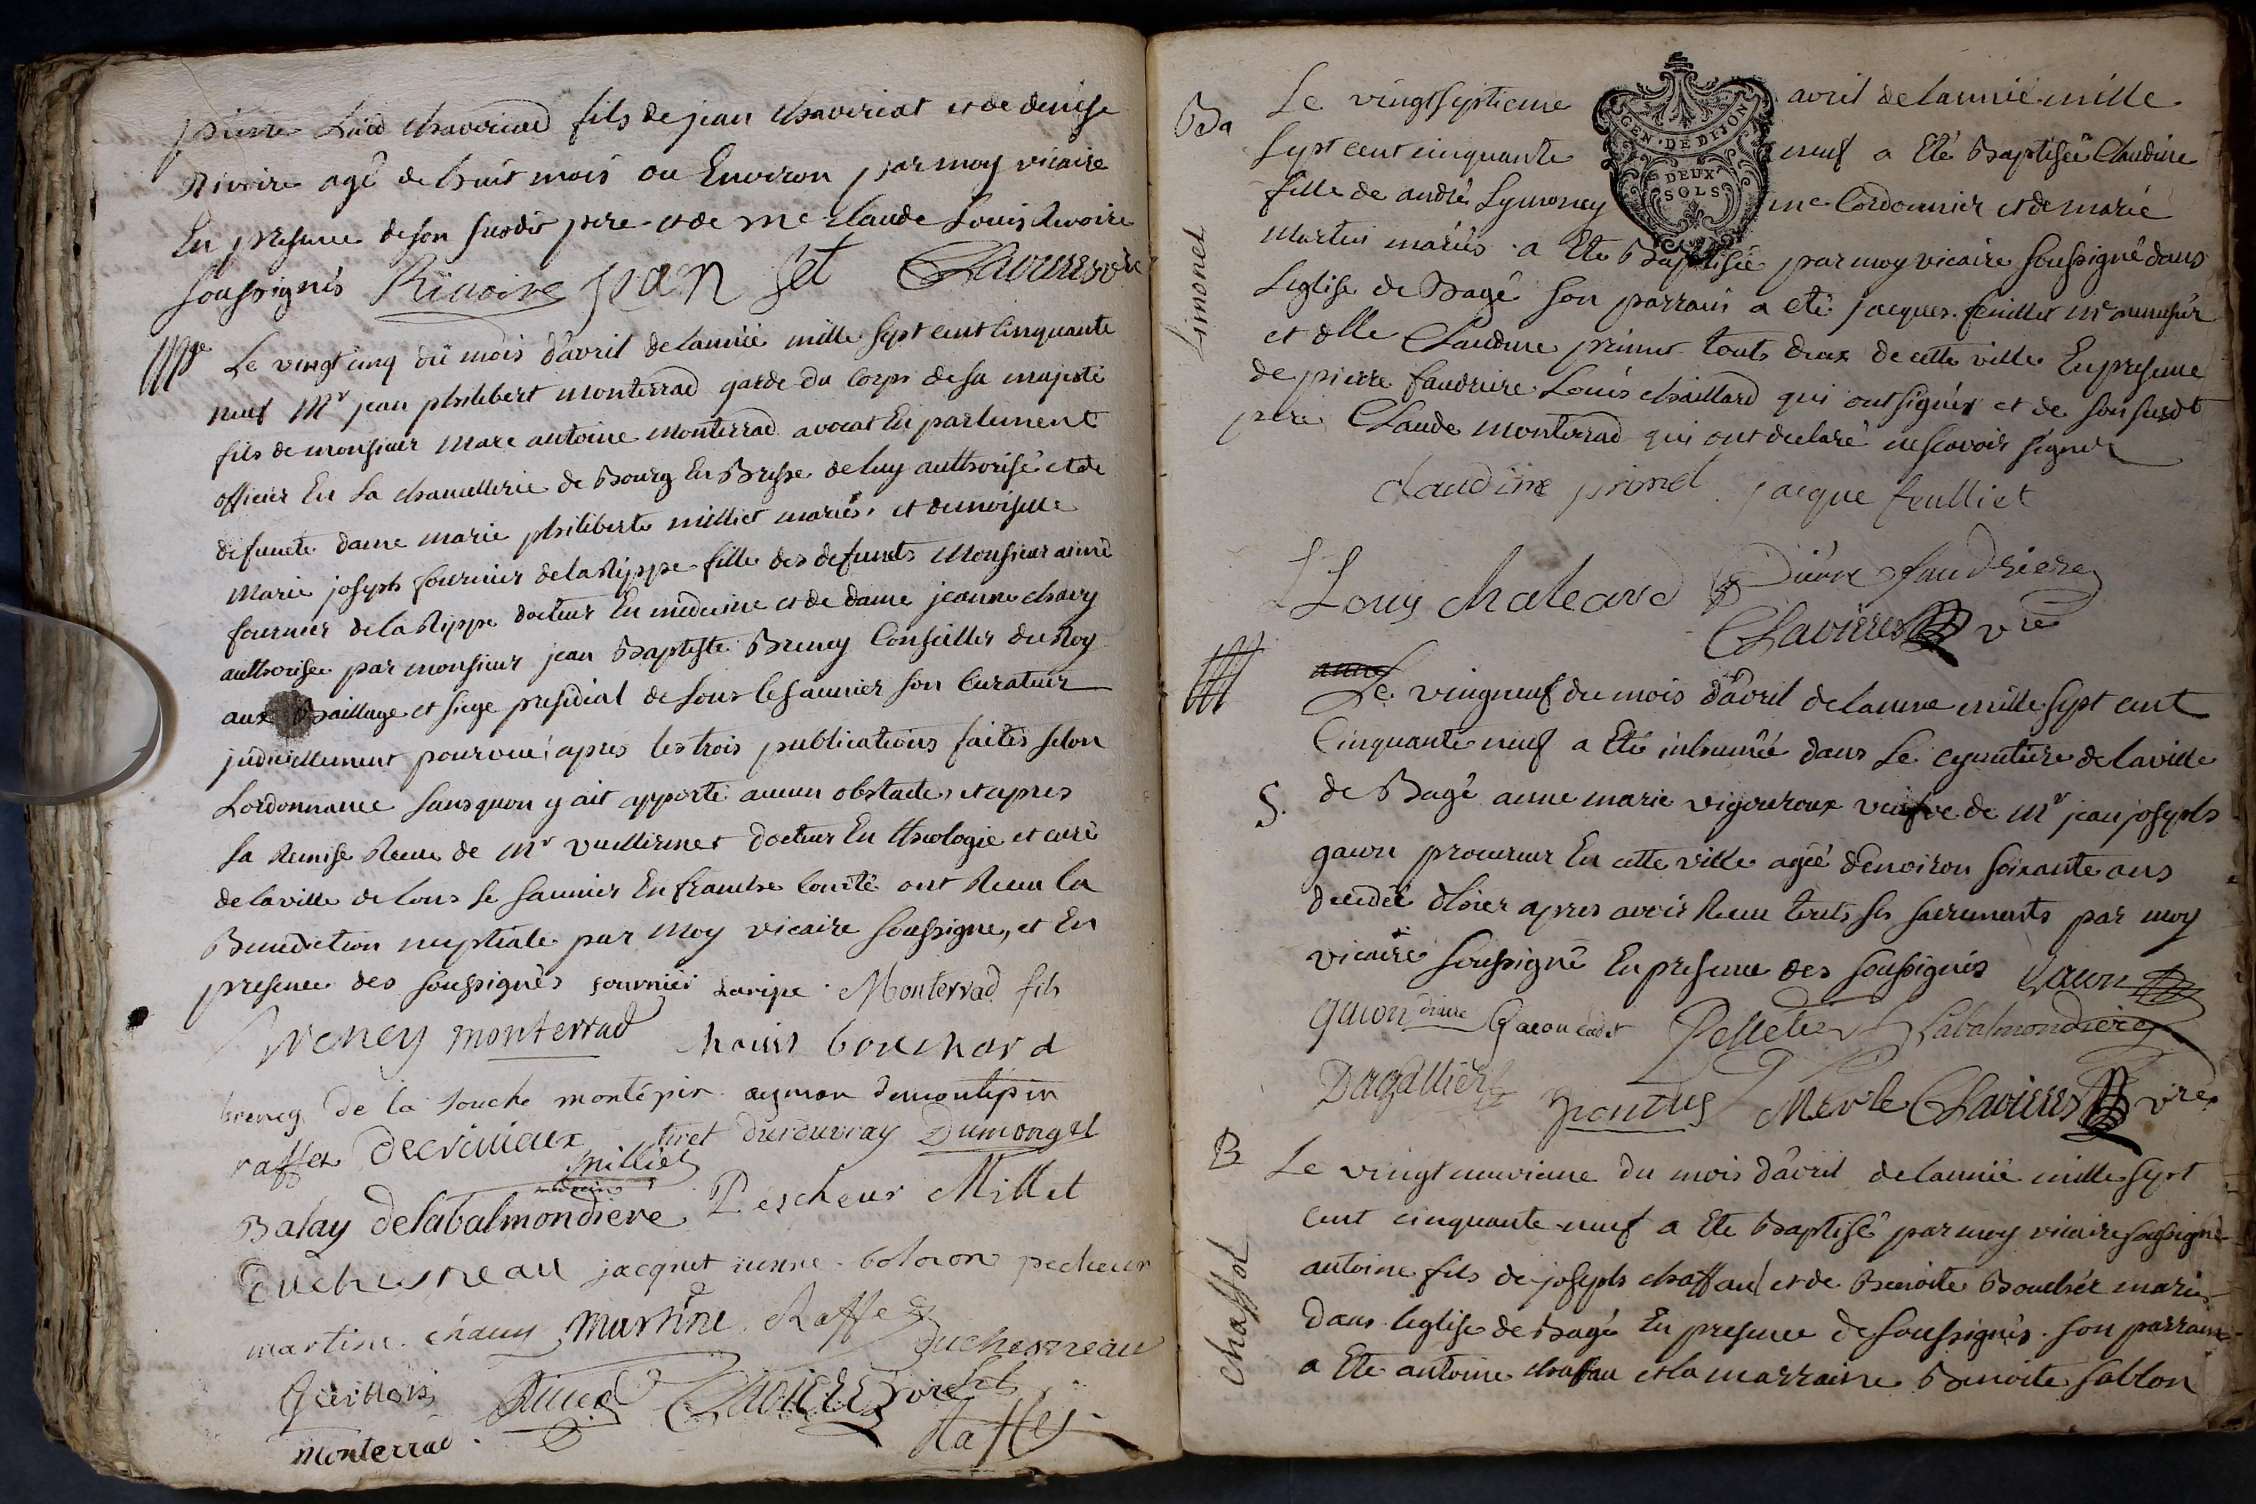 pierre chaveriad fils de jean chaveriat et de denise
Rivoire agé de huit mois ou Environ par moy vicaire
En presence de son susdit pere et de me claude Louis Rivoire
soussignés Rivoire jean Claviere vre
Le vingt cinq dü mois d'avril de lannéé mille sept cent cinquante
neuf Mr jean philibert monterrad garde du corps de sa majesté
fils de monsieur marc antoine monterrad avocat En parlement
officier En La chancellerie de Bourg En Bresse de luy authorisé et de
defuncte dame marie philiberte milliet mariés, et demoiselle
Marie joseph fournier de la Rippe fille des defuncts Monsieur aimé
fournier de la Rippe docteur En medecine et de dame jeanne chavy
authorisée par monsieur jean Baptiste Breney Conseiller du Roy
aux Baillage et siege presidial de Lons le saunier son Curateur
judiciellement pourvuë, apres les trois publications faites selon
Lordonnance sans quon y ait apporté aucun obstacle, et apres
la Remise Reçue de mr vuillermet docteur En theologie et curé
de la ville de lons le saunier En franche Comté ont Reçu la
Benediction nuptiale par moy vicaire soussigne, et En
presence des soussignés fournier Laripe Monterrad fils
Breney monterrad bouchard
breney de la souche montépin aymon demontépin
raffet Decrivieux duvray Dumonget
milliet
medecin
Balay delabalmondiere Pescheur Millet
Duchesneau jacquet pecheur
martine chavy martine Raffet
Duchesneau
Claviere vire
monterrad Raffet
Ba
Le vingt septieme avril de lannéé mille
GEN · DE DIJON
DEUX
SOLS
sept cent cinquante neuf a Eté Baptiséé Claudine
fille de andré Lymoney me Cordonnier et de marie
martin mariés a Eté Baptiséé par moy vicaire soussigné dans
Simonet
Leglise de Bagé son parrain a eté jacques feuillet
et elle Claudine primet touts deux de cette ville En presence
de pierre faudriere Louis chaillard qui ont signés et de son susdt
pere Claude monterrad qui ont declaré ne scavoir signer
claudine primel jacque feulliet
Louy chaleard Piere faudriere
Claviere vre
Le vingneuf du mois d'avril de lanne mille sept cent
Cinquante neuf a Eté inhuméé dans Le cymetiere de la ville
S.
de Bagé anne marie vigouroux veufve de Mr jean joseph
gacon procureur En cette ville agéé denviron soixante ans
decedéé d'hier apres avoir Reçu touts ses sacrements par moy
vicaire soussigné En presence des soussignés Gacon
gacon Gacon cadet Pelletier Labalmondiere
Dagallier pontus Merle Claviere vre
B
Le vingt neuvieme du mois d'avril de lannéé mille sept
cent cinquante neuf a Eté Baptisé par moy vicaire soussigné
chaffot
antoine fils de joseph chaffau et de Benoite Bouchér mariés
dans leglise de Bagé En presence de soussignés son parrain
a Eté antoine chaffau et la marraine Benoite sablon